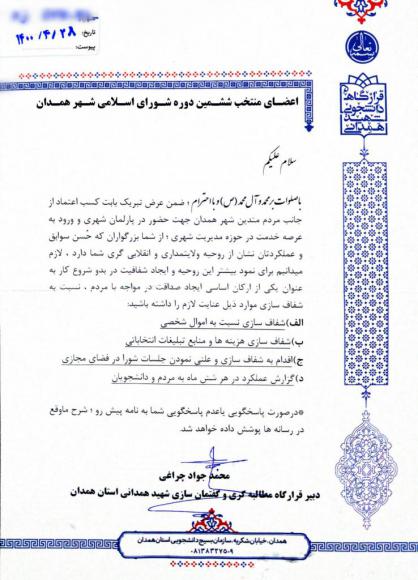 تاریخ: ۱۴۰۰/۴/۲۸
پیوست:
بسمه تعالی
قرارگاه
دانشجویی
شهید
همدانی
اعضای منتخب ششمین دوره شورای اسلامی شهر همدان
سلام علیکم
با صلوات بر محمد و آل محمد(ص) و با احترام ؛ ضمن عرض تبریک بابت کسب اعتماد از
جانب مردم متدین شهر همدان جهت حضور در پارلمان شهری و ورود به
عرصه خدمت در حوزه مدیریت شهری ؛ از شما بزرگواران که حُسن سوابق
و عملکردتان نشان از روحیه ولایتمداری و انقلابی گری شما دارد ، لازم
میدانیم برای نمود بیشتر این روحیه و ایجاد شفافیت در بدو شروع کار به
عنوان یکی از ارکان اساسی ایجاد صداقت در مواجه با مردم ، نسبت به
شفاف سازی موارد ذیل عنایت لازم را داشته باشید:
الف)شفاف سازی نسبت به اموال شخصی
ب)شفاف سازی هزینه ها و منابع تبلیغات انتخاباتی
ج)اقدام به شفاف سازی و علنی نمودن جلسات شورا در فضای مجازی
د)گزارش عملکرد در هر شش ماه به مردم و دانشجویان
*درصورت پاسخگویی یاعدم پاسخگویی شما به نامه پیش رو ؛ شرح ماوقع
در رسانه ها پوشش داده خواهد شد.
محمد جواد چراغی
دبیر قرارگاه مطالبه گری و گفتمان سازی شهید همدانی استان همدان
همدان، خیابان شکریه، سازمان بسیج دانشجویی استان همدان
۰۸۱۳۸۳۲۷۵۰۹